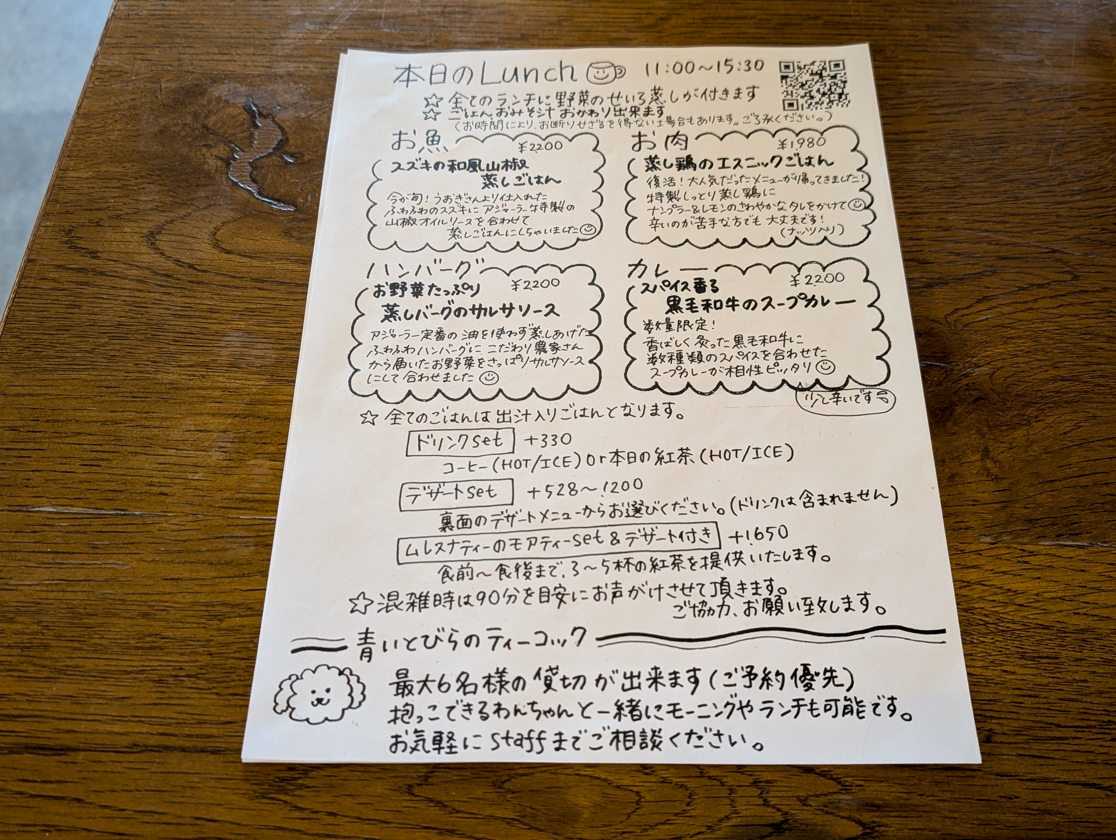 本日のLunch 11:00～15:30
☆全てのランチに野菜のせいろ蒸しが付きます
☆ごはん、おみそ汁 おかわり出来ます
(お時間により、お断りせざるを得ない場合もあります。ご了承ください。)
お魚 ¥2200
スズキの和風山椒
蒸しごはん
今が旬！うおぎさんより仕入れた
ふわふわのスズキにアジョーラー特製の
山椒オイルソースを合わせて
蒸しごはんにしちゃいました
お肉 ¥1980
蒸し鶏のエスニックごはん
復活！大人気だったメニューが帰ってきました！
特製しっとり蒸し鶏に
ナンプラー&レモンのさわやかなタレをかけて
辛いのが苦手な方でも大丈夫です！
(ナッツ入り)
ハンバーグ ¥2200
お野菜たっぷり
蒸しバーグのサルサソース
アジョーラー定番の油を使わず蒸しあげた
ふわふわハンバーグにこだわり農家さん
から届いたお野菜をさっぱりサルサソース
にして合わせました
カレー ¥2200
スパイス香る
黒毛和牛のスープカレー
数量限定！
香ばしく炙った黒毛和牛に
数種類のスパイスを合わせた
スープカレーが相性ピッタリ
少し辛いです
☆全てのごはんは出汁入りごはんとなります。
ドリンクset +330
コーヒー(HOT/ICE)or本日の紅茶(HOT/ICE)
デザートset +528～1200
裏面のデザートメニューからお選びください。(ドリンクは含まれません)
ムレスナティーのモアティーset&デザート付き +1650
食前～食後まで、3～5杯の紅茶を提供いたします。
☆混雑時は90分を目安にお声がけさせて頂きます。
ご協力、お願い致します。
青いとびらのティーコック
最大6名様の貸切が出来ます(ご予約優先)
抱っこできるわんちゃんと一緒にモーニングやランチも可能です。
お気軽にstaffまでご相談ください。